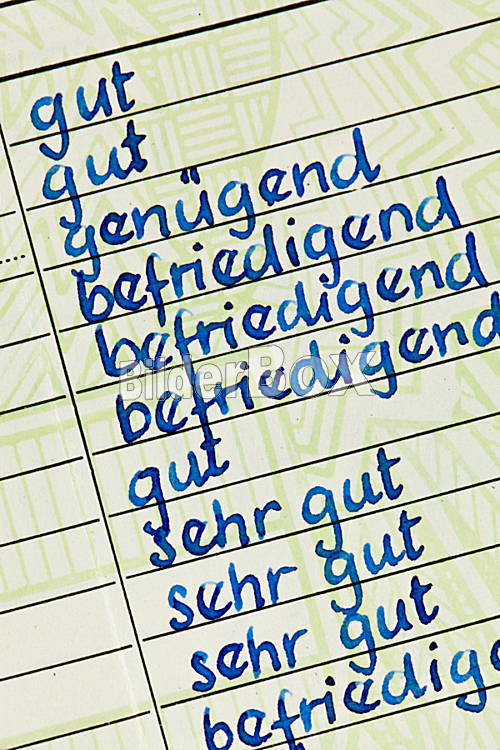 gut
gut
genügend
befriedigend
befriedigend
befriedigend
BilderBox
gut
sehr gut
sehr gut
sehr gut
befriedige